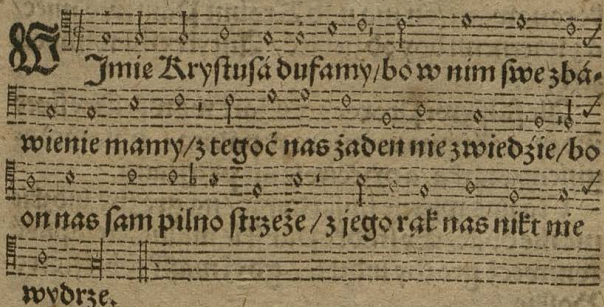 W Imie Krystusá dufamy/bo w nim swe zbá-
wienie mamy/z tegoć nas żaden nie zwiedzie/bo
on nas sam pilno strzeże/z jego rąk nas nikt nie
wydrze.